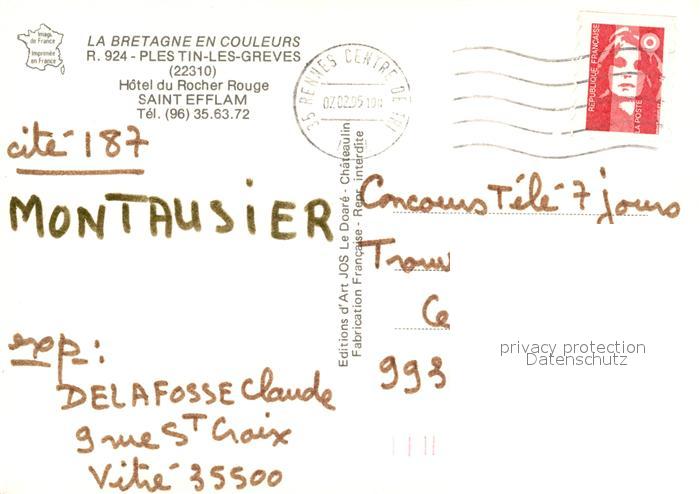 Image
de France
Imprimée
en France
LA BRETAGNE EN COULEURS
R. 924 - PLESTIN-LES-GREVES
(22310)
Hôtel du Rocher Rouge
SAINT EFFLAM
Tél. (96) 35.63.72
35 RENNES CENTRE DE TRI
07.02.95
REPUBLIQUE FRANÇAISE
LA POSTE
cité 187
MONTAUSIER
exp:
DELAFOSSE Claude
9 rue St Croix
Vitré 35500
Editions d'Art JOS Le Doaré - Châteaulin
Fabrication Française - Repr. interdite
Concours Télé 7 jours
Ce
993
privacy protection
Datenschutz